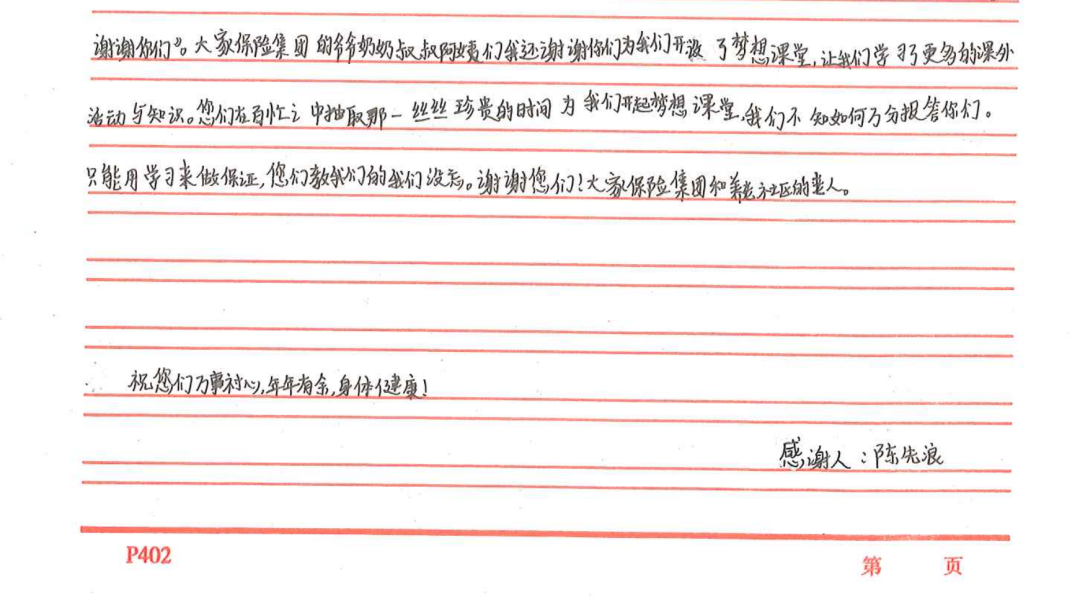 谢谢你们”。大家保险集团的爷爷奶奶叔叔阿姨们我还谢谢你们为我们开设了梦想课堂,让我们学习了更多的课外
活动与知识。您们在百忙之中抽取那一丝丝珍贵的时间为我们开起梦想课堂,我们不知如何万分报答你们。
只能用学习来做保证,您们教我们的我们没忘。谢谢您们!大家保险集团和养老社区的业人。
祝您们万事衬心,年年有余,身体健康!
感谢人:陈先浪
P402
第 页